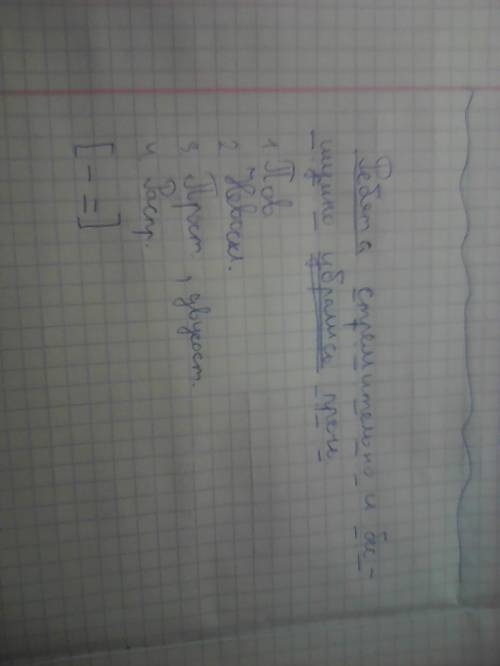 Ребята стремительно и бес-
шумно убрались прочь
1 Пов
2 Невоскл.
3. Прост, двусост.
4. Распр.
[ – = ]